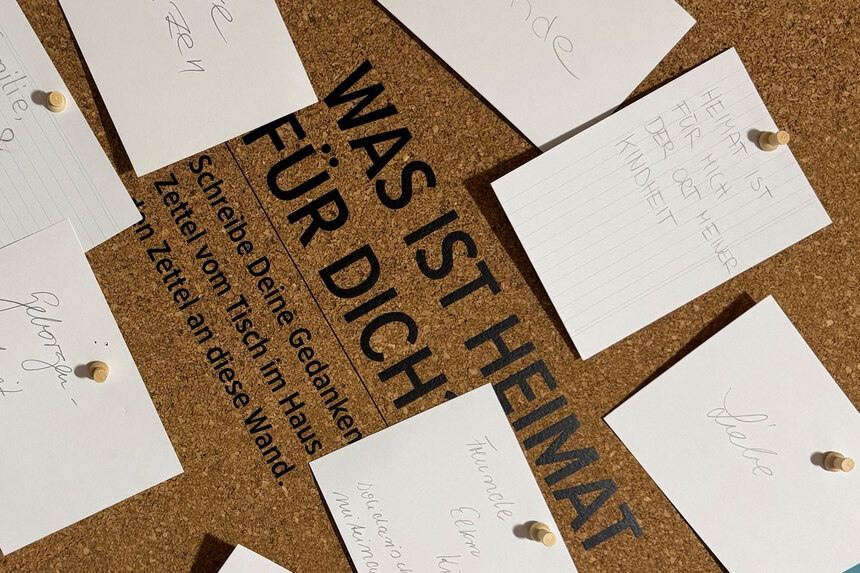 WAS IST HEIMAT
FÜR DICH?
Schreibe Deine Gedanken
Zettel vom Tisch im Haus
Zettel an diese Wand.
HEIMAT IST
FÜR MICH
DER ORT MEINER
KINDHEIT
Liebe
Freunde
Eltern
Ki
solidarisch
miteinan
Geborgen-
milie,
zen
nde